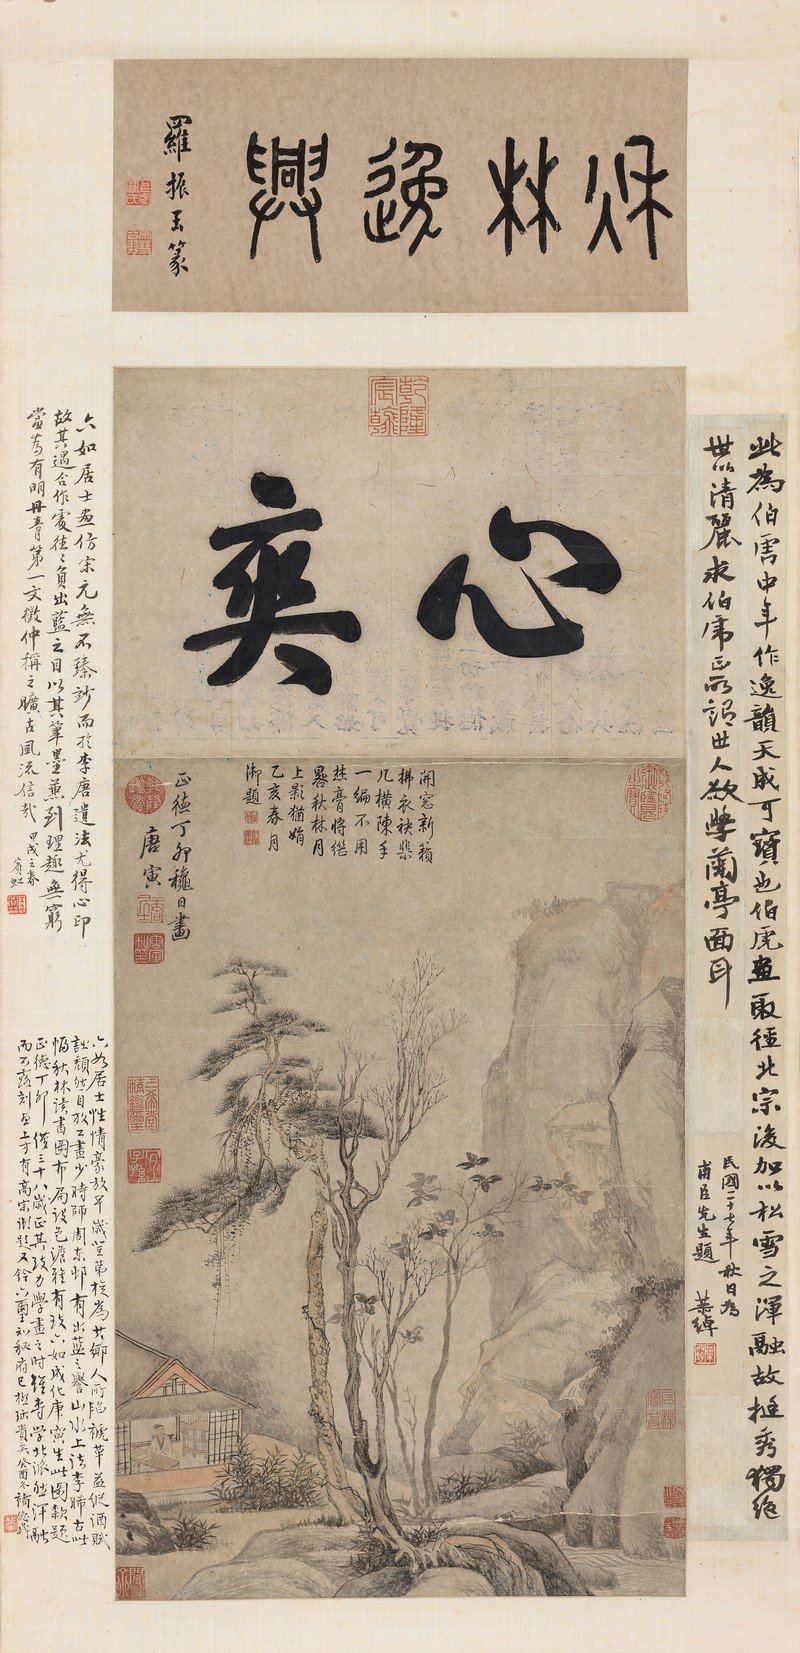 秋林逸興
羅振玉篆
乾隆宸翰
心奕
開窓新籟
拂衣袂棐
几橫陳手
一編不用
焚膏將繼
晷秋林月
上影猶娟
乙亥春月
御題
正德丁卯穐日畫
唐寅
此為伯虎中年作逸韻天成可寶也伯虎畫取徑北宗浚加以松雪之渾融故挺秀獨絕
世以清麗求伯虎正所謂世人欲學蘭亭面耳
民國二十七年秋日為
甫臣先生題 葉綽
六如居士畫仿宋元無不臻妙而於李唐遺法尤得心印
故其遇合作處往往負出藍之目以其筆墨兼到理趣無窮
當為有明丹青第一文徵仲稱之曠古風流信哉 甲戌之春 賓虹
六如居士性情豪放早歲坐第為共鄉人所陷褫革益縱酒賦
詩頹然自放工畫少時師周東邨有出藍之譽山水上法李晞古此
幀秋林讀書圖布局設色澹雅有致六如成化庚寅生此圖款題
正德丁卯僅三十八歲正其致力學畫之時雖專學北派然渾融
而不露刻畫上方有高宗御題又鈐六璽知秘府已極珍貴矣癸酉冬褚德彝